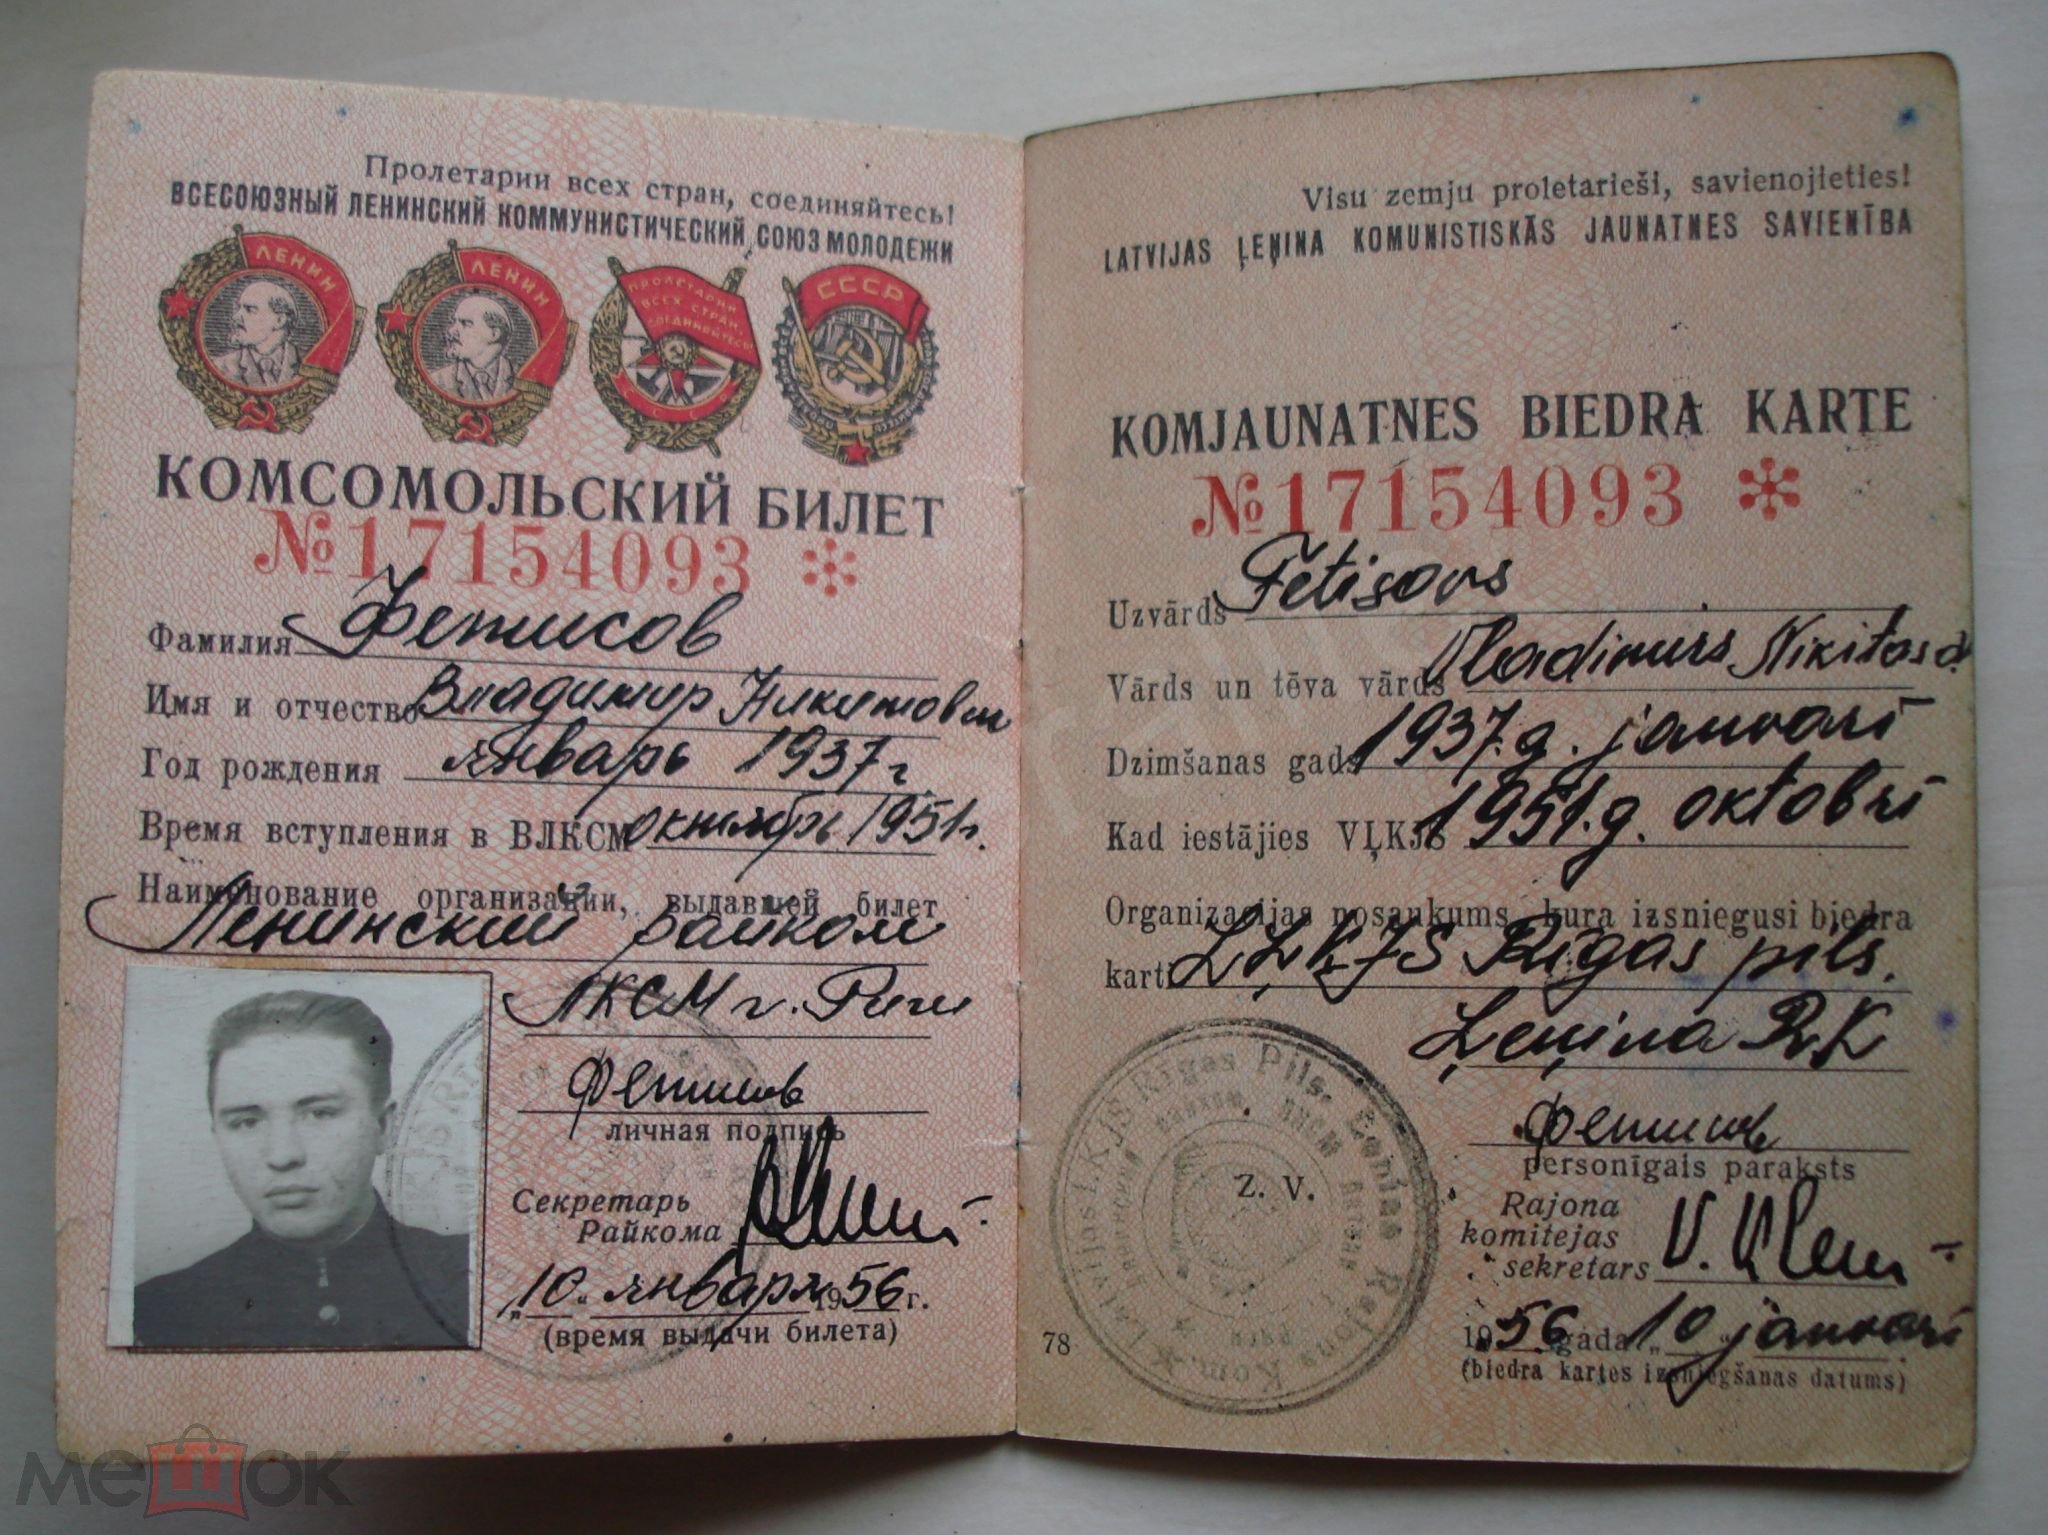 Пролетарии всех стран, соединяйтесь!
ВСЕСОЮЗНЫЙ ЛЕНИНСКИЙ КОММУНИСТИЧЕСКИЙ СОЮЗ МОЛОДЕЖИ
ЛЕНИН
ЛЕНИН
ПРОЛЕТАРИИ
ВСЕХ СТРАН,
СОЕДИНЯЙТЕСЬ!
СССР
СССР
КОМСОМОЛЬСКИЙ БИЛЕТ
№17154093 *
Фамилия Фетисов
Имя и отчество Владимир Никитович
Год рождения январь 1937 г
Время вступления в ВЛКСМ октябрь 1951 г.
Наименование организации, выдавшей билет
Ленинский райком
ЛКСМ г. Риги
Фетисов
личная подпись
Секретарь
Райкома
"10" января 1956 г.
(время выдачи билета)
Visu zemju proletarieši, savienojieties!
LATVIJAS ĻEŅINA KOMUNISTISKĀS JAUNATNES SAVIENĪBA
KOMJAUNATNES BIEDRA KARTE
№17154093 *
Uzvārds Fetisovs
Vārds un tēva vārds Vladimirs Nikitas d.
Dzimšanas gads 1937. g. janvarī
Kad iestājies VĻKJS 1951. g. oktobrī
Organizacijas nosaukums, kura izsniegusi biedra
karti LĻKJS Rīgas pils.
Ļeņina RK
Фетисов
personīgais paraksts
Z. V.
Rajona
komitejas
sekretars
1956 gada "10" janvarī
(biedra kartes izsniegšanas datums)
78
мешок